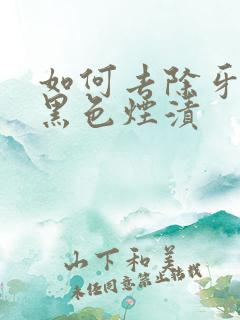 如何去除牙
黑色烟渍
山下和美
未经同意禁止转载